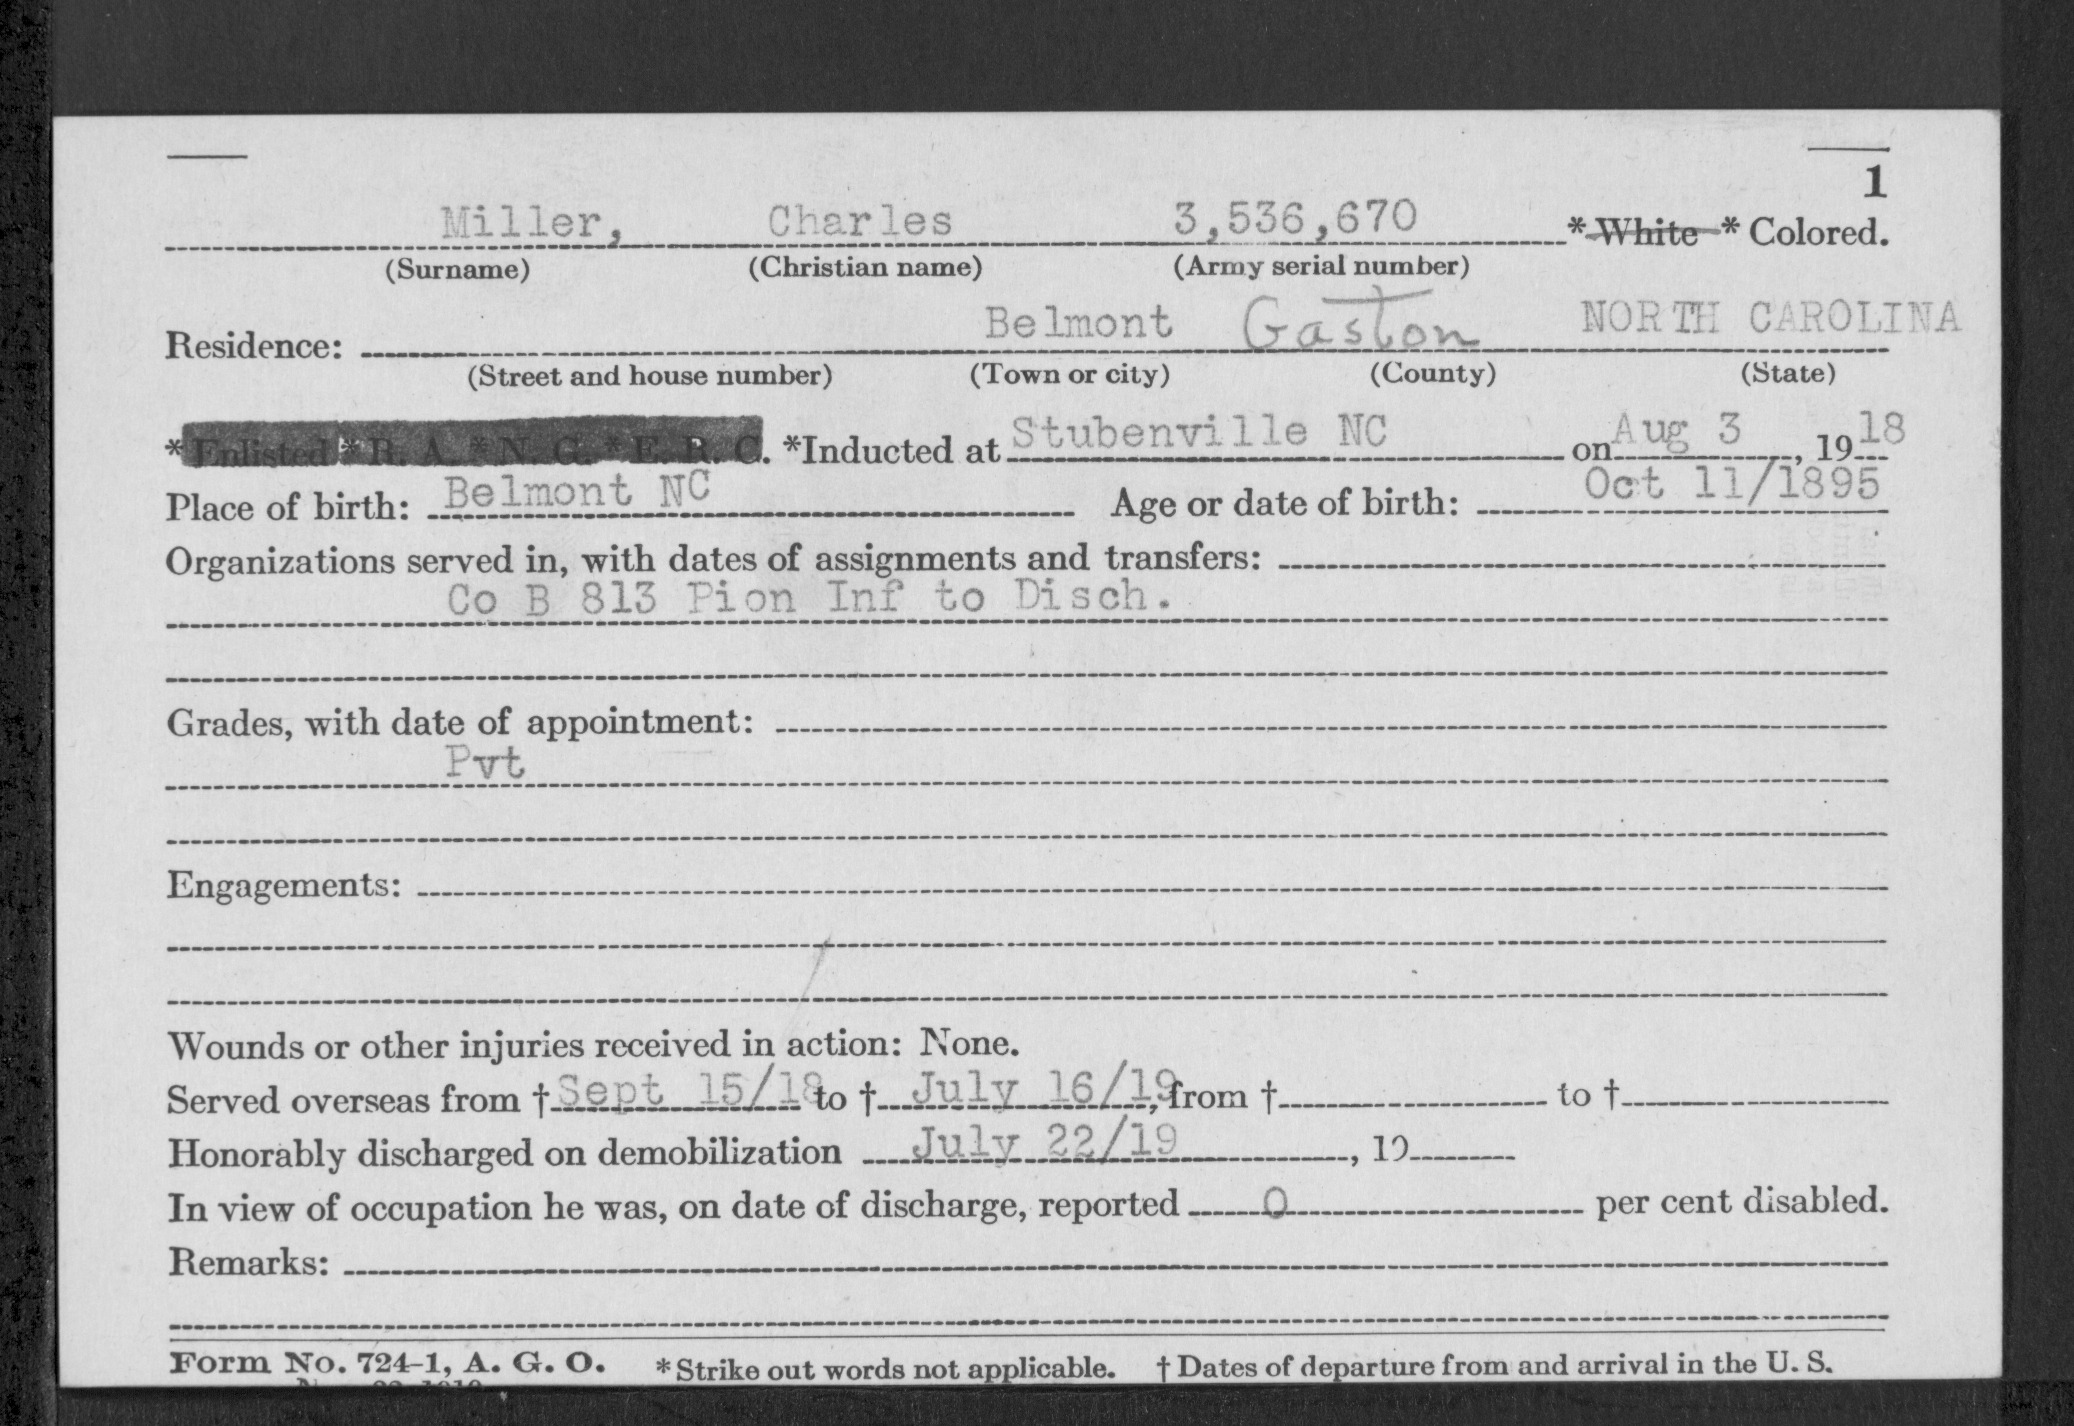 1
Miller, Charles 3,536,670 *White * Colored.
(Surname) (Christian name) (Army serial number)
Residence: Belmont Gaston NORTH CAROLINA
(Street and house number) (Town or city) (County) (State)
*Enlisted *R. A. *N. G. *E. R. C. *Inducted at Stubenville NC on Aug 3, 1918
Place of birth: Belmont NC Age or date of birth: Oct 11/1895
Organizations served in, with dates of assignments and transfers:
Co B 813 Pion Inf to Disch.
Grades, with date of appointment:
Pvt
Engagements:
Wounds or other injuries received in action: None.
Served overseas from † Sept 15/18 to † July 16/19, from † to †
Honorably discharged on demobilization July 22/19, 19
In view of occupation he was, on date of discharge, reported 0 per cent disabled.
Remarks:
Form No. 724-1, A. G. O. *Strike out words not applicable. † Dates of departure from and arrival in the U. S.